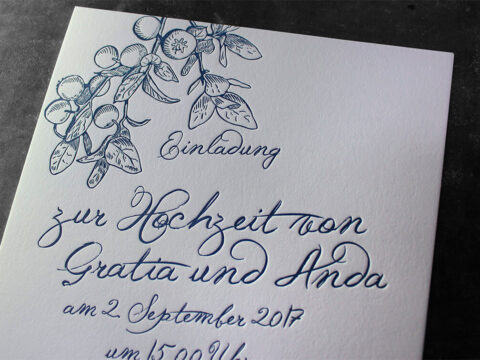 Einladung
zur Hochzeit von
Gratia und Anda
am 2. September 2017
um 15.00 Uhr